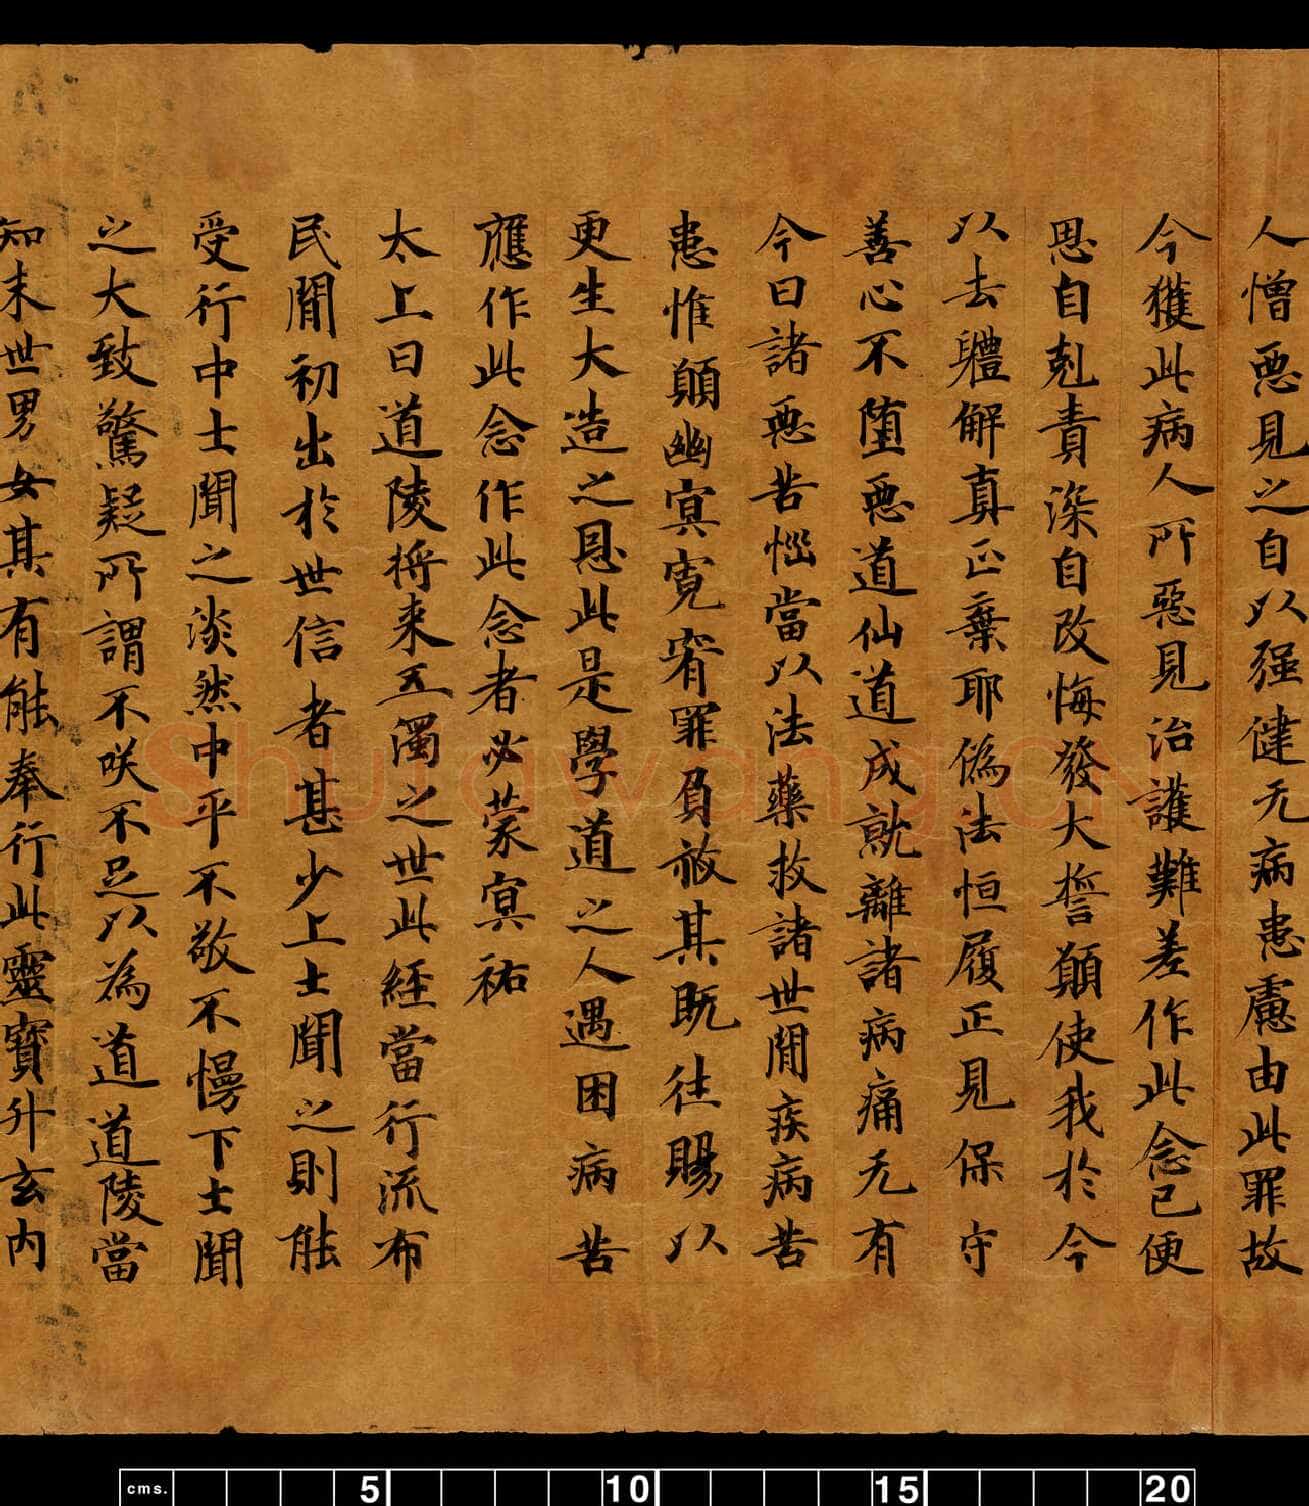 人憎惡見之自以强健无病患慮由此罪故
今獲此病人所惡見治護難差作此念已便
思自剋責深自改悔發大誓願使我於今
以去軆解真正棄耶偽法恒履正見保守
善心不堕惡道仙道成就離諸病痛无有
今日諸惡苦惱當以法藥救諸世間疾病苦
患惟願幽冥寛宥罪負赦其既往賜以
更生大造之恩此是學道之人遇困病苦
應作此念作此念者必蒙冥祐
太上曰道陵將来五濁之世此經當行流布
民間初出於世信者甚少上士聞之則能
受行中士聞之淡然中平不敬不慢下士聞
之大致驚疑所謂不咲不足以為道道陵當
知末世男女其有能奉行此靈寶升玄内
Shufawang.CN
cms. 5 10 15 20